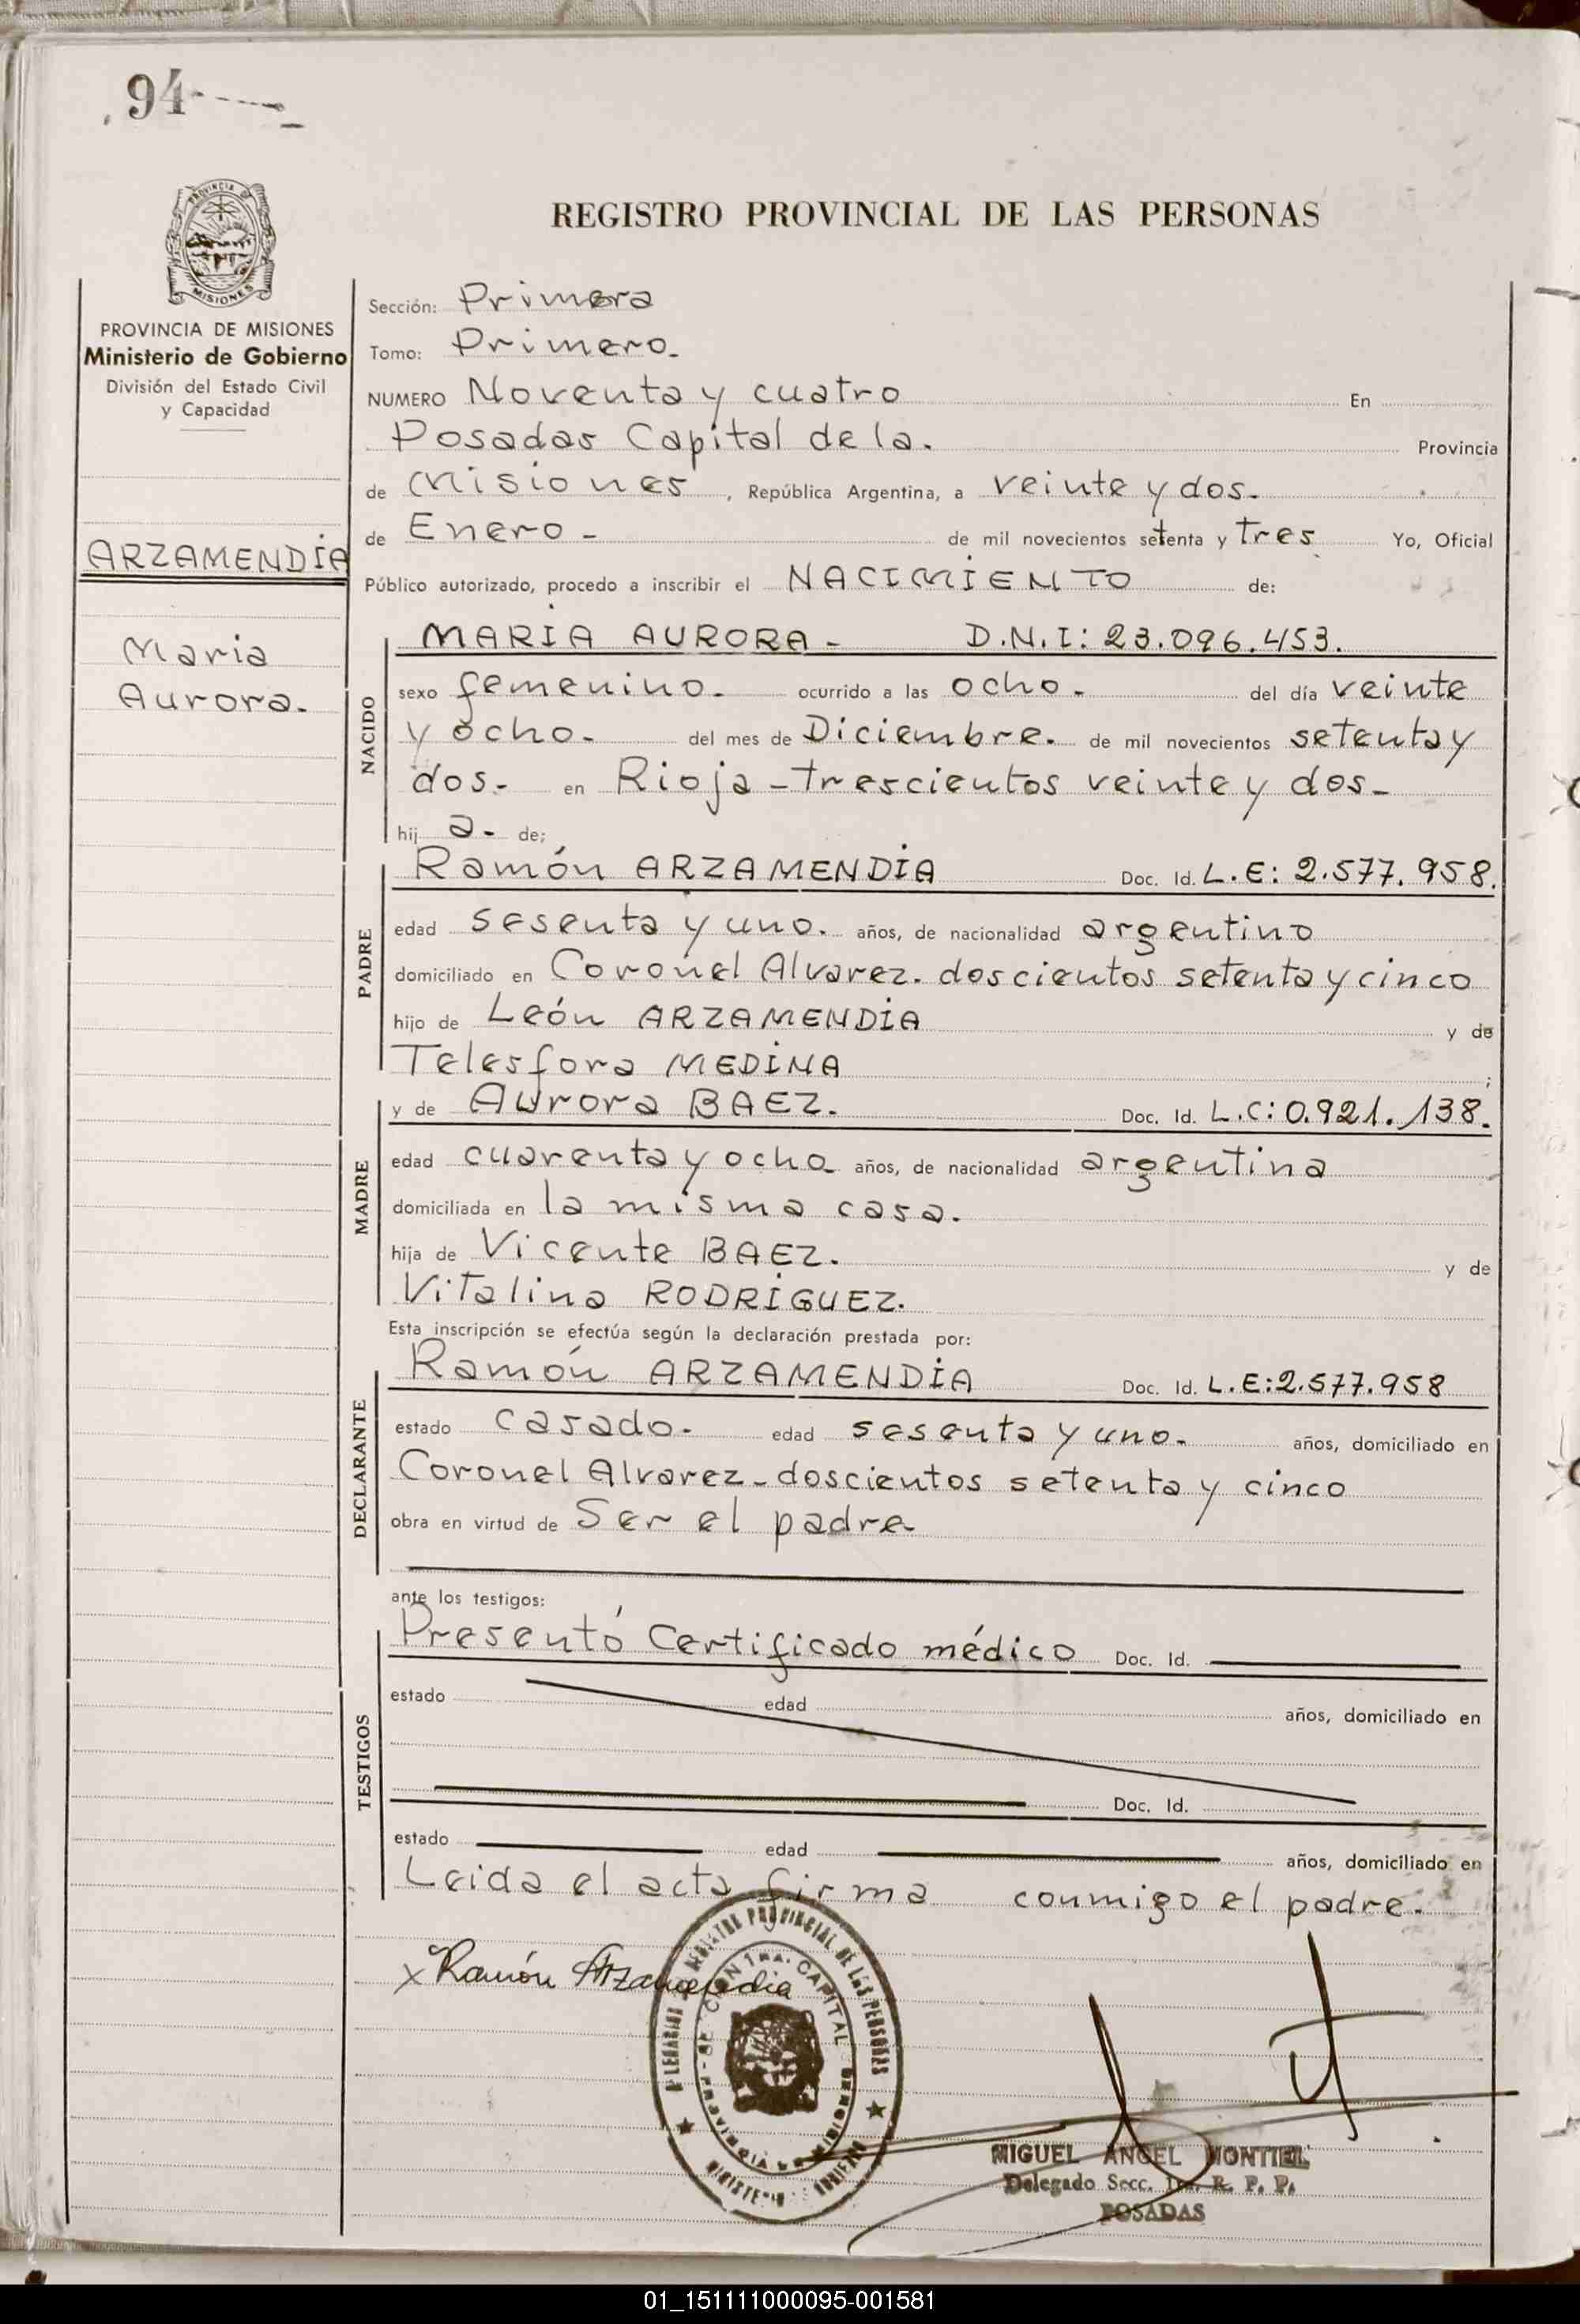 94
PROVINCIA DE MISIONES
Ministerio de Gobierno
División del Estado Civil
y Capacidad
ARZAMENDÍA
Maria
Aurora.
REGISTRO PROVINCIAL DE LAS PERSONAS
Sección: Primera
Tomo: Primero.
NUMERO Noventa y cuatro En
Posadas Capital de la. Provincia
de Misiones, República Argentina, a veinte y dos.
de Enero - de mil novecientos setenta y tres Yo, Oficial
Público autorizado, procedo a inscribir el NACIMIENTO de:
NACIDO
MARIA AURORA - D.N.I: 23.096.453.
sexo femenino. ocurrido a las ocho. del día veinte
y ocho. del mes de Diciembre. de mil novecientos setenta y
dos. en Rioja - trescientos veinte y dos -
hij a. de;
PADRE
Ramón ARZAMENDÍA Doc. Id. L.E: 2.577.958.
edad sesenta y uno. años, de nacionalidad argentino
domiciliado en Coronel Alvarez. doscientos setenta y cinco
hijo de León ARZAMENDÍA y de
Telesfora MEDINA ;
MADRE
y de Aurora BAEZ. Doc. Id. L.C: 0.921.138.
edad cuarenta y ocho años, de nacionalidad argentina
domiciliada en la misma casa.
hija de Vicente BAEZ. y de
Vitalina RODRÍGUEZ.
Esta inscripción se efectúa según la declaración prestada por:
DECLARANTE
Ramón ARZAMENDÍA Doc. Id. L.E:2.577.958
estado casado. edad sesenta y uno. años, domiciliado en
Coronel Alvarez - doscientos setenta y cinco
obra en virtud de Ser el padre
ante los testigos:
TESTIGOS
Presentó Certificado médico Doc. Id.
estado edad años, domiciliado en
Doc. Id.
estado edad años, domiciliado en
Leida el acta firma conmigo el padre.
x Ramón Arzamendia
REGISTRO PROVINCIAL DE LAS PERSONAS
CAPITAL
MIGUEL ANGEL MONTIEL
Delegado Secc. 1ra. R. P. P.
POSADAS
01_151111000095-001581